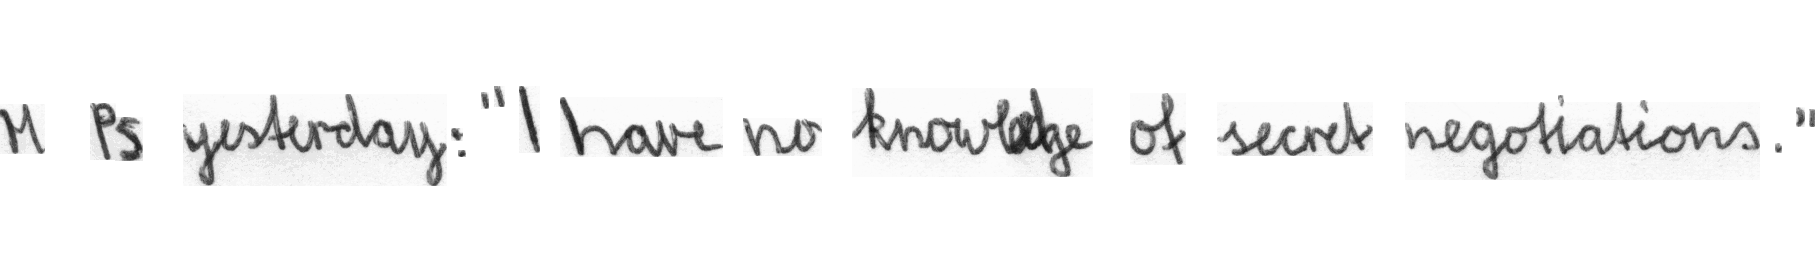 M Ps yesterday: "I have no knowledge of secret negotiations."